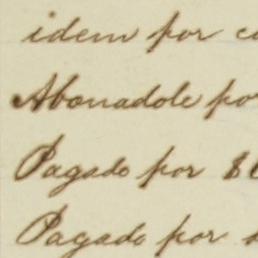 idem por
Abonadole por
Pagado por $
Pagado por